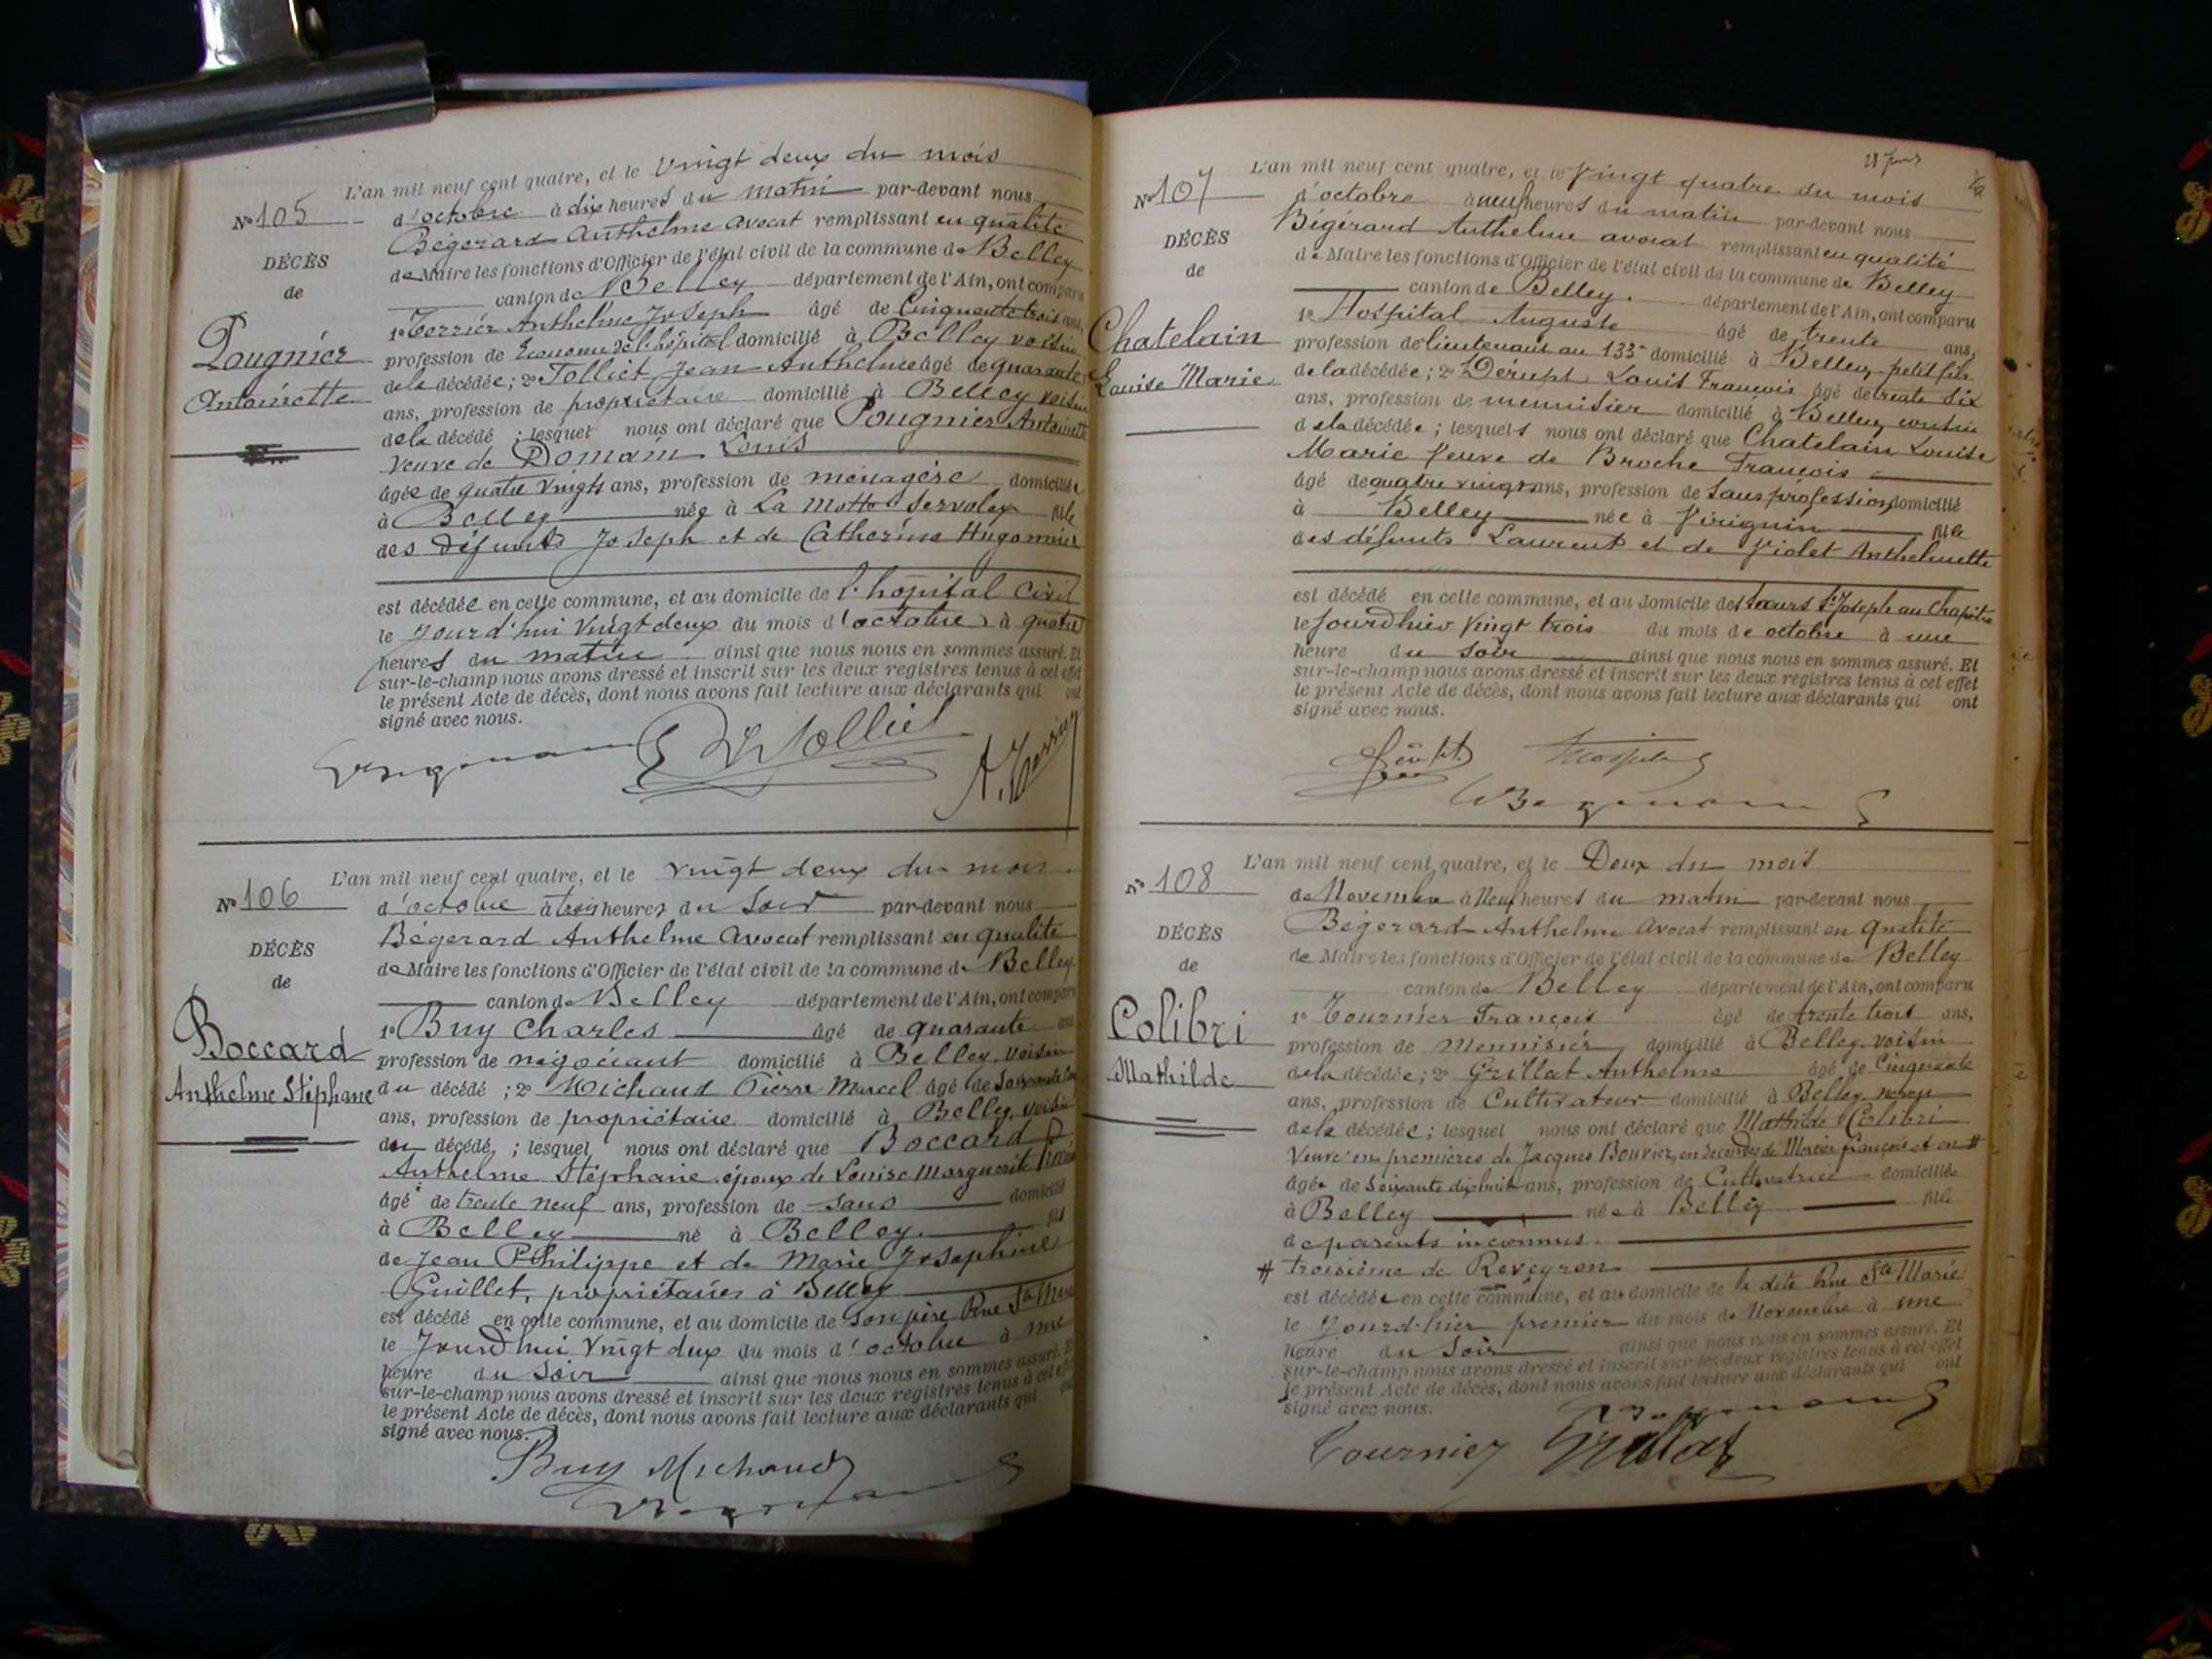 L'an mil neuf cent quatre, et le Vingt deux du mois
No 105 d'octobre à dix heures du matin par-devant nous
Bégerard Anthelme avocat remplissant en qualité
DÉCÈS
de Maire les fonctions d'Officier de l'état civil de la commune de Belley
de
canton de Belley département de l'Ain, ont comparu
1o Terrier Anthelme Joseph âgé de Cinquante trois ans,
Pougnier
profession de Econome de l'hôpital domicilié à Belley voisin
dela décédée; 2o Tolliet Jean Anthelme âgé de quarante
Antoinette
ans, profession de propriétaire domicilié à Belley voisin
dela décédé ; lesquel nous ont déclaré que Pougnier Antoinette
Veuve de Domain Louis
âgée de quatre Vingts ans, profession de ménagère domiciliée
à Belley née à La Motte Servolex fille
des défunts Joseph et de Catherine Hugonnier
est décédée en cette commune, et au domicile de l'hôpital Civil
le Jourd'hui Vingt deux du mois d'octobre à quatre
heures du matin ainsi que nous nous en sommes assuré. Et
sur-le-champ nous avons dressé et inscrit sur les deux registres tenus à cet effet
le présent Acte de décès, dont nous avons fait lecture aux déclarants qui ont
signé avec nous.
Tolliet
A. Terrier
L'an mil neuf cent quatre, et le vingt deux du mois
No 106 d'octobre à trois heures du Soir par-devant nous
Bégerard Anthelme Avocat remplissant en qualité
DÉCÈS
de Maire les fonctions d'Officier de l'état civil de la commune de Belley
de
canton de Belley département de l'Ain, ont comparu
1o Buy Charles âgé de quarante ans
Boccard
profession de négociant domicilié à Belley, voisin
Anthelme Stéphane
du décédé ; 2o Michaud Pierre Marcel âgé de
ans, profession de propriétaire domicilié à Belley, voisin
du décédé ; lesquel nous ont déclaré que Boccard
Anthelme Stéphane époux de Louise Marguerite
âgé de trente neuf ans, profession de sans domicilié
à Belley né à Belley fils
de Jean Philippe et de Marie Josephine
Guillet, propriétaires à Belley
est décédé en cette commune, et au domicile de Son père Rue Ste Marie
le Jourd'hui Vingt deux du mois d'octobre à une
heure du Soir ainsi que nous nous en sommes assuré. Et
sur-le-champ nous avons dressé et inscrit sur les deux registres tenus à cet effet
le présent Acte de décès, dont nous avons fait lecture aux déclarants qui ont
signé avec nous.
Buy Michaud
L'an mil neuf cent quatre, et le Vingt quatre du mois
No 107 d'octobre à neuf heures du matin par-devant nous
Bégérard Anthelme avocat remplissant en qualité
DÉCÈS
de Maire les fonctions d'Officier de l'état civil de la commune de Belley
de
canton de Belley. département de l'Ain, ont comparu
1o Hospital Auguste âgé de trente ans,
Chatelain
profession de lieutenant au 133e domicilié à Belley petit fils
Louise Marie
de la décédée; 2o Dérupt Louis François âgé de trente six
ans, profession de menuisier domicilié à Belley
dela décédée ; lesquels nous ont déclaré que Chatelain Louise
Marie Veuve de Broche François
âgé de quatre vingts ans, profession de Sans profession domicilié
à Belley née à Virignin fille
des défunts Laurent et de Violet Anthelmette
est décédé en cette commune, et au domicile des Sœurs St Joseph au Chapitre
le Jourd'hier Vingt trois du mois de octobre à une
heure du Soir ainsi que nous nous en sommes assuré. Et
sur-le-champ nous avons dressé et inscrit sur les deux registres tenus à cet effet
le présent Acte de décès, dont nous avons fait lecture aux déclarants qui ont
signé avec nous.
Hospital
L'an mil neuf cent quatre, et le Deux du mois
No 108 de Novembre à Neuf heures du matin par-devant nous
Bégerard Anthelme Avocat remplissant en qualité
DÉCÈS
de Maire les fonctions d'Officier de l'état civil de la commune de Belley
de
canton de Belley département de l'Ain, ont comparu
1o Tournier François âgé de trente trois ans,
Colibri
profession de Menuisier domicilié à Belley voisin
Mathilde
dela décédée; 2o Grillat Anthelme âgé de Cinquante
ans, profession de Cultivateur domicilié à Belley neveu
dela décédée; lesquel nous ont déclaré que Mathilde Colibri
Veuve en premières de Jacques Bouvier, en secondes de Mercier françois et en #
âgée de Soixante dix huit ans, profession de Cultivatrice domiciliée
à Belley née à Belley fille
de parents inconnus.
# troisième de Reveyron
est décédée en cette commune, et au domicile de la dite Rue Ste Marie
le Jourd'hier premier du mois de Novembre à une
heure du Soir ainsi que nous nous en sommes assuré. Et
sur-le-champ nous avons dressé et inscrit sur les deux registres tenus à cet effet
le présent Acte de décès, dont nous avons fait lecture aux déclarants qui ont
signé avec nous.
Tournier Grillat